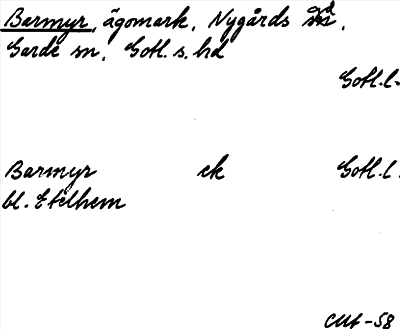 Barmyr, ägomark, Nygårds gd,
Garde sn, Gotl. s. hd
Gotl. l.
Barmyr ek Gotl. l.
bl. Etelhem
-58